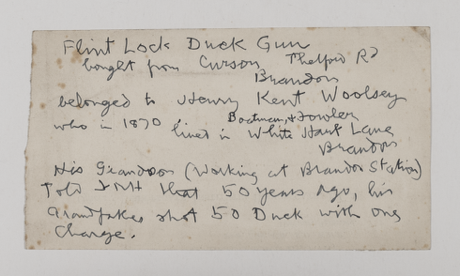 Flint Lock Duck Gun
bought from Curson, Thetford Rd
Brandon
belonged to Henry Kent Woolsey
Boatman & Fowler
who in 1870 lived in White Hart Lane
Brandon
His Grandson (Working at Brandon Station)
Told that 50 years ago, his
Grandfather shot 50 Duck with one
Charge.